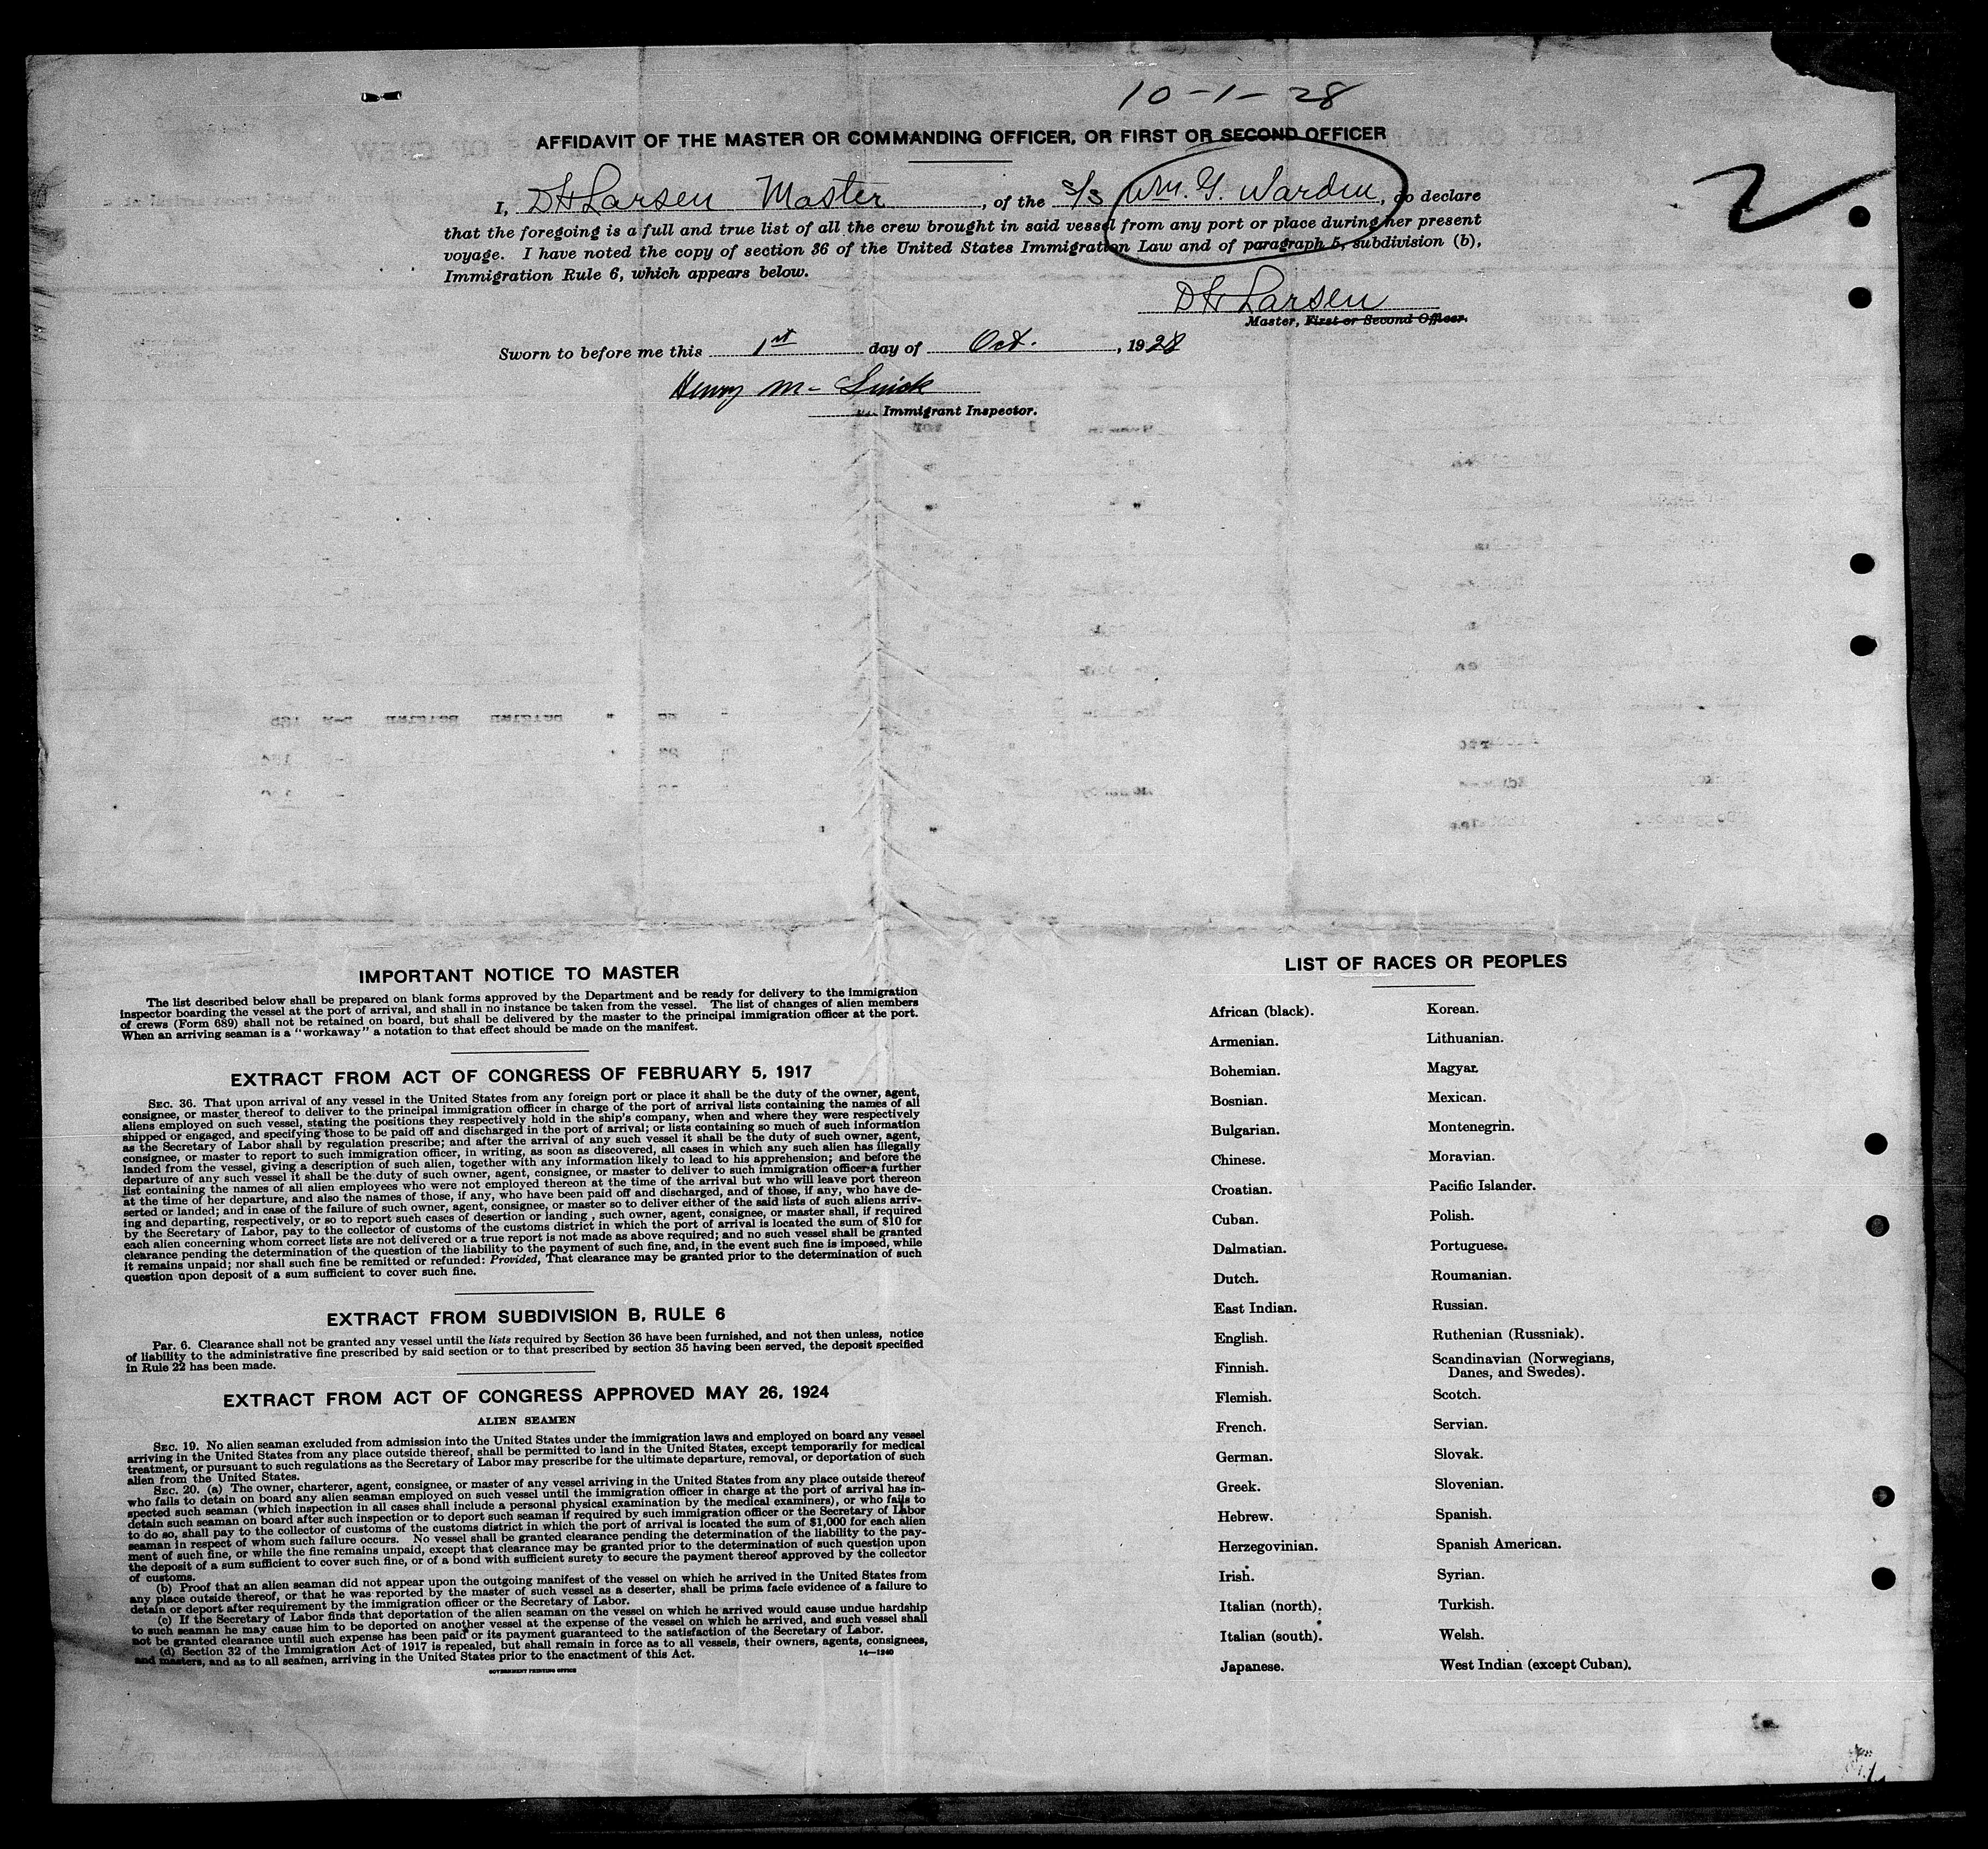 10-1-28
AFFIDAVIT OF THE MASTER OR COMMANDING OFFICER, OR FIRST OR SECOND OFFICER
I, D H Larsen Master, of the S/S Wm. G. Warden, do declare
that the foregoing is a full and true list of all the crew brought in said vessel from any port or place during her present
voyage. I have noted the copy of section 36 of the United States Immigration Law and of paragraph 5, subdivision (b),
Immigration Rule 6, which appears below.
D H Larsen
Master, First or Second Officer.
Sworn to before me this 1st day of Oct., 1928
Henry M
Immigrant Inspector.
2
IMPORTANT NOTICE TO MASTER
The list described below shall be prepared on blank forms approved by the Department and be ready for delivery to the immigration
inspector boarding the vessel at the port of arrival, and shall in no instance be taken from the vessel. The list of changes of alien members
of crews (Form 689) shall not be retained on board, but shall be delivered by the master to the principal immigration officer at the port.
When an arriving seaman is a "workaway" a notation to that effect should be made on the manifest.
EXTRACT FROM ACT OF CONGRESS OF FEBRUARY 5, 1917
SEC. 36. That upon arrival of any vessel in the United States from any foreign port or place it shall be the duty of the owner, agent,
consignee, or master thereof to deliver to the principal immigration officer in charge of the port of arrival lists containing the names of all
aliens employed on such vessel, stating the positions they respectively hold in the ship's company, when and where they were respectively
shipped or engaged, and specifying those to be paid off and discharged in the port of arrival; or lists containing so much of such information
as the Secretary of Labor shall by regulation prescribe; and after the arrival of any such vessel it shall be the duty of such owner, agent,
consignee, or master to report to such immigration officer, in writing, as soon as discovered, all cases in which any such alien has illegally
landed from the vessel, giving a description of such alien, together with any information likely to lead to his apprehension; and before the
departure of any such vessel it shall be the duty of such owner, agent, consignee, or master to deliver to such immigration officer a further
list containing the names of all alien employees who were not employed thereon at the time of the arrival but who will leave port thereon
at the time of her departure, and also the names of those, if any, who have been paid off and discharged, and of those, if any, who have de-
serted or landed; and in case of the failure of such owner, agent, consignee, or master so to deliver either of the said lists of such aliens arriv-
ing and departing, respectively, or so to report such cases of desertion or landing, such owner, agent, consignee, or master shall, if required
by the Secretary of Labor, pay to the collector of customs of the customs district in which the port of arrival is located the sum of $10 for
each alien concerning whom correct lists are not delivered or a true report is not made as above required; and no such vessel shall be granted
clearance pending the determination of the question of the liability to the payment of such fine, and, in the event such fine is imposed, while
it remains unpaid; nor shall such fine be remitted or refunded: Provided, That clearance may be granted prior to the determination of such
question upon deposit of a sum sufficient to cover such fine.
EXTRACT FROM SUBDIVISION B, RULE 6
Par. 6. Clearance shall not be granted any vessel until the lists required by Section 36 have been furnished, and not then unless, notice
of liability to the administrative fine prescribed by said section or to that prescribed by section 35 having been served, the deposit specified
in Rule 22 has been made.
EXTRACT FROM ACT OF CONGRESS APPROVED MAY 26, 1924
ALIEN SEAMEN
SEC. 19. No alien seaman excluded from admission into the United States under the immigration laws and employed on board any vessel
arriving in the United States from any place outside thereof, shall be permitted to land in the United States, except temporarily for medical
treatment, or pursuant to such regulations as the Secretary of Labor may prescribe for the ultimate departure, removal, or deportation of such
alien from the United States.
SEC. 20. (a) The owner, charterer, agent, consignee, or master of any vessel arriving in the United States from any place outside thereof
who fails to detain on board any alien seaman employed on such vessel until the immigration officer in charge at the port of arrival has in-
spected such seaman (which inspection in all cases shall include a personal physical examination by the medical examiners), or who fails to
detain such seaman on board after such inspection or to deport such seaman if required by such immigration officer or the Secretary of Labor
to do so, shall pay to the collector of customs of the customs district in which the port of arrival is located the sum of $1,000 for each alien
seaman in respect of whom such failure occurs. No vessel shall be granted clearance pending the determination of the liability to the pay-
ment of such fine, or while the fine remains unpaid, except that clearance may be granted prior to the determination of such question upon
the deposit of a sum sufficient to cover such fine, or of a bond with sufficient surety to secure the payment thereof approved by the collector
of customs.
(b) Proof that an alien seaman did not appear upon the outgoing manifest of the vessel on which he arrived in the United States from
any place outside thereof, or that he was reported by the master of such vessel as a deserter, shall be prima facie evidence of a failure to
detain or deport after requirement by the immigration officer or the Secretary of Labor.
(c) If the Secretary of Labor finds that deportation of the alien seaman on the vessel on which he arrived would cause undue hardship
to such seaman he may cause him to be deported on another vessel at the expense of the vessel on which he arrived, and such vessel shall
not be granted clearance until such expense has been paid or its payment guaranteed to the satisfaction of the Secretary of Labor.
(d) Section 32 of the Immigration Act of 1917 is repealed, but shall remain in force as to all vessels, their owners, agents, consignees,
and masters, and as to all seamen, arriving in the United States prior to the enactment of this Act.
14—1240
GOVERNMENT PRINTING OFFICE
LIST OF RACES OR PEOPLES
African (black).
Armenian.
Bohemian.
Bosnian.
Bulgarian.
Chinese.
Croatian.
Cuban.
Dalmatian.
Dutch.
East Indian.
English.
Finnish.
Flemish.
French.
German.
Greek.
Hebrew.
Herzegovinian.
Irish.
Italian (north).
Italian (south).
Japanese.
Korean.
Lithuanian.
Magyar.
Mexican.
Montenegrin.
Moravian.
Pacific Islander.
Polish.
Portuguese.
Roumanian.
Russian.
Ruthenian (Russniak).
Scandinavian (Norwegians,
Danes, and Swedes).
Scotch.
Servian.
Slovak.
Slovenian.
Spanish.
Spanish American.
Syrian.
Turkish.
Welsh.
West Indian (except Cuban).